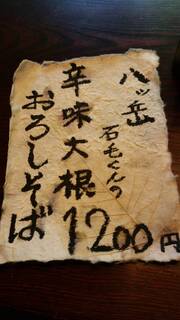 八ヶ岳
石毛くんの
辛味大根
おろしそば
1200円